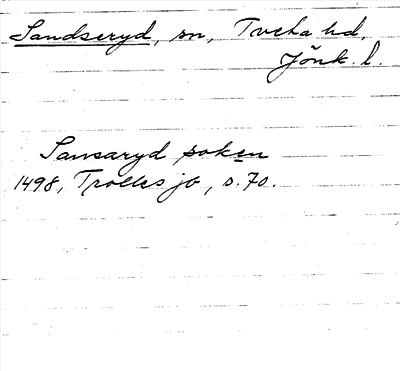 Sandseryd, sn, Tveta hd,
Jönk. l.
Sansaryd soken
1498, Trolles jb, s. 70.